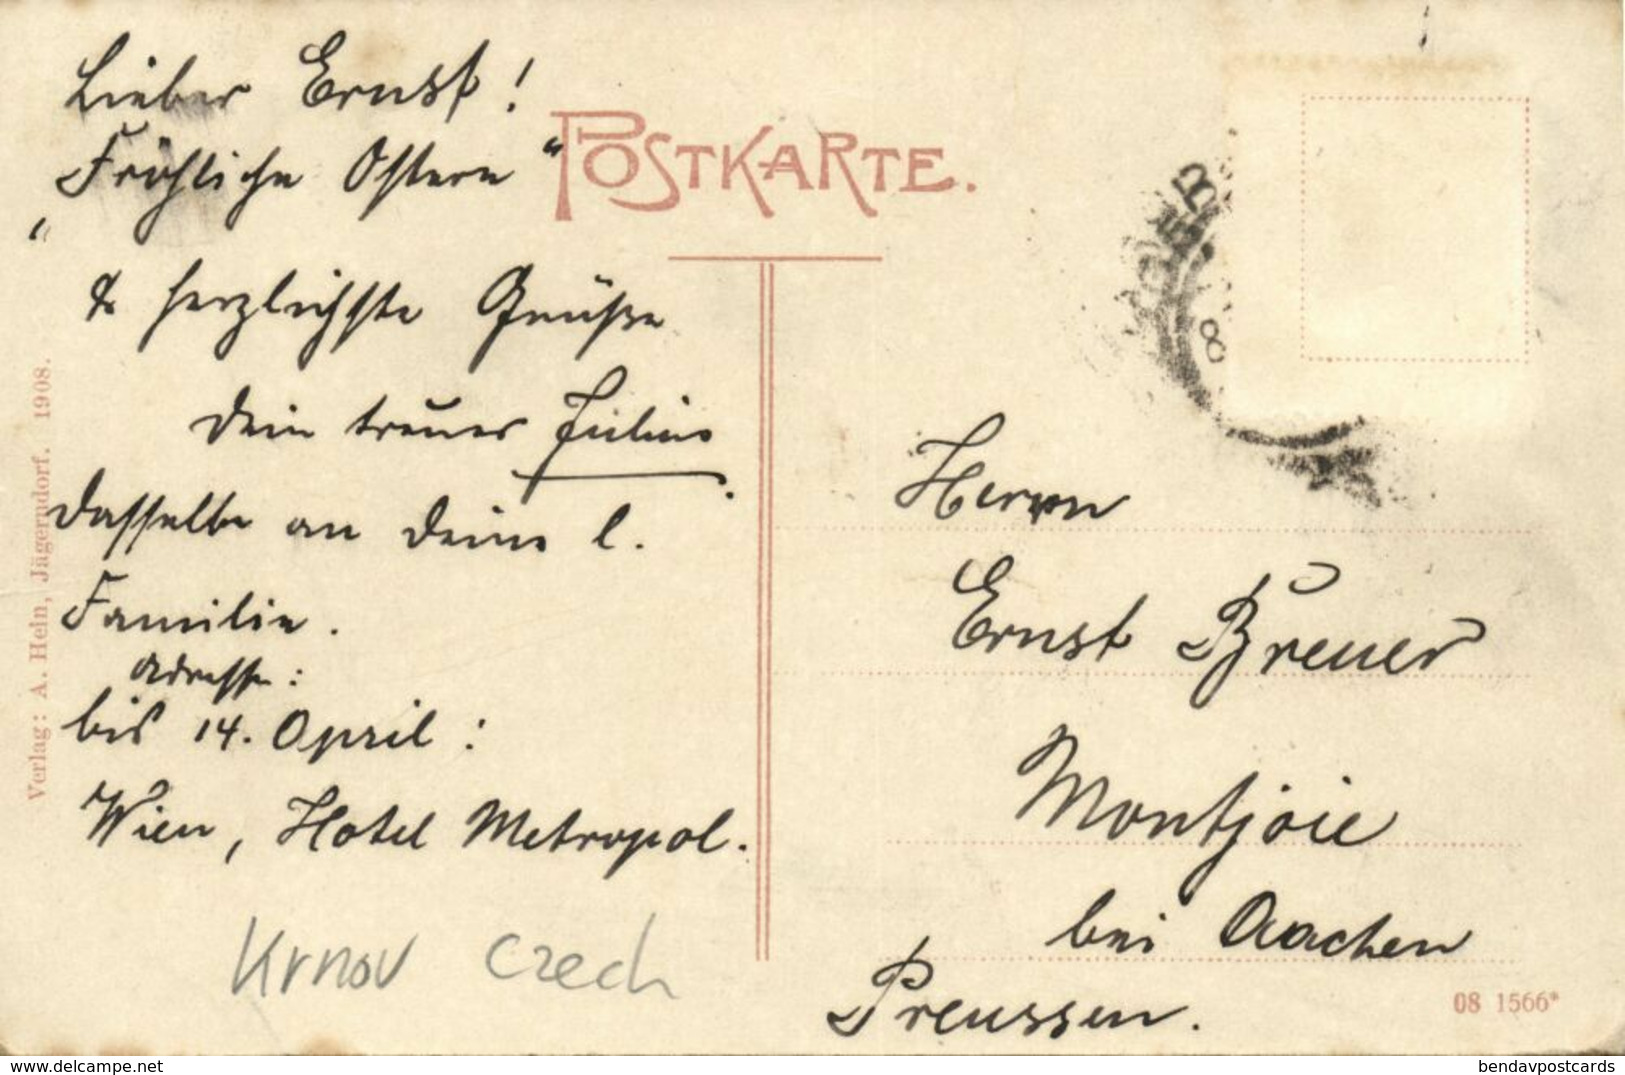 Lieber Ernst!
POSTKARTE.
„Fröhliche Ostern“
& herzlichste Grüße
Dein treuer Julius.
dasselbe an Deine l.
Familie.
Adresse:
bis 14. April:
Wien, Hotel Metropol.
Krnov Czech
Herrn
Ernst Breuer
Montjoie
bei Aachen
Preussen.
Verlag: A. Hein, Jägerndorf. 1908.
08 1566*
bendavpostcards
www.delcampe.net